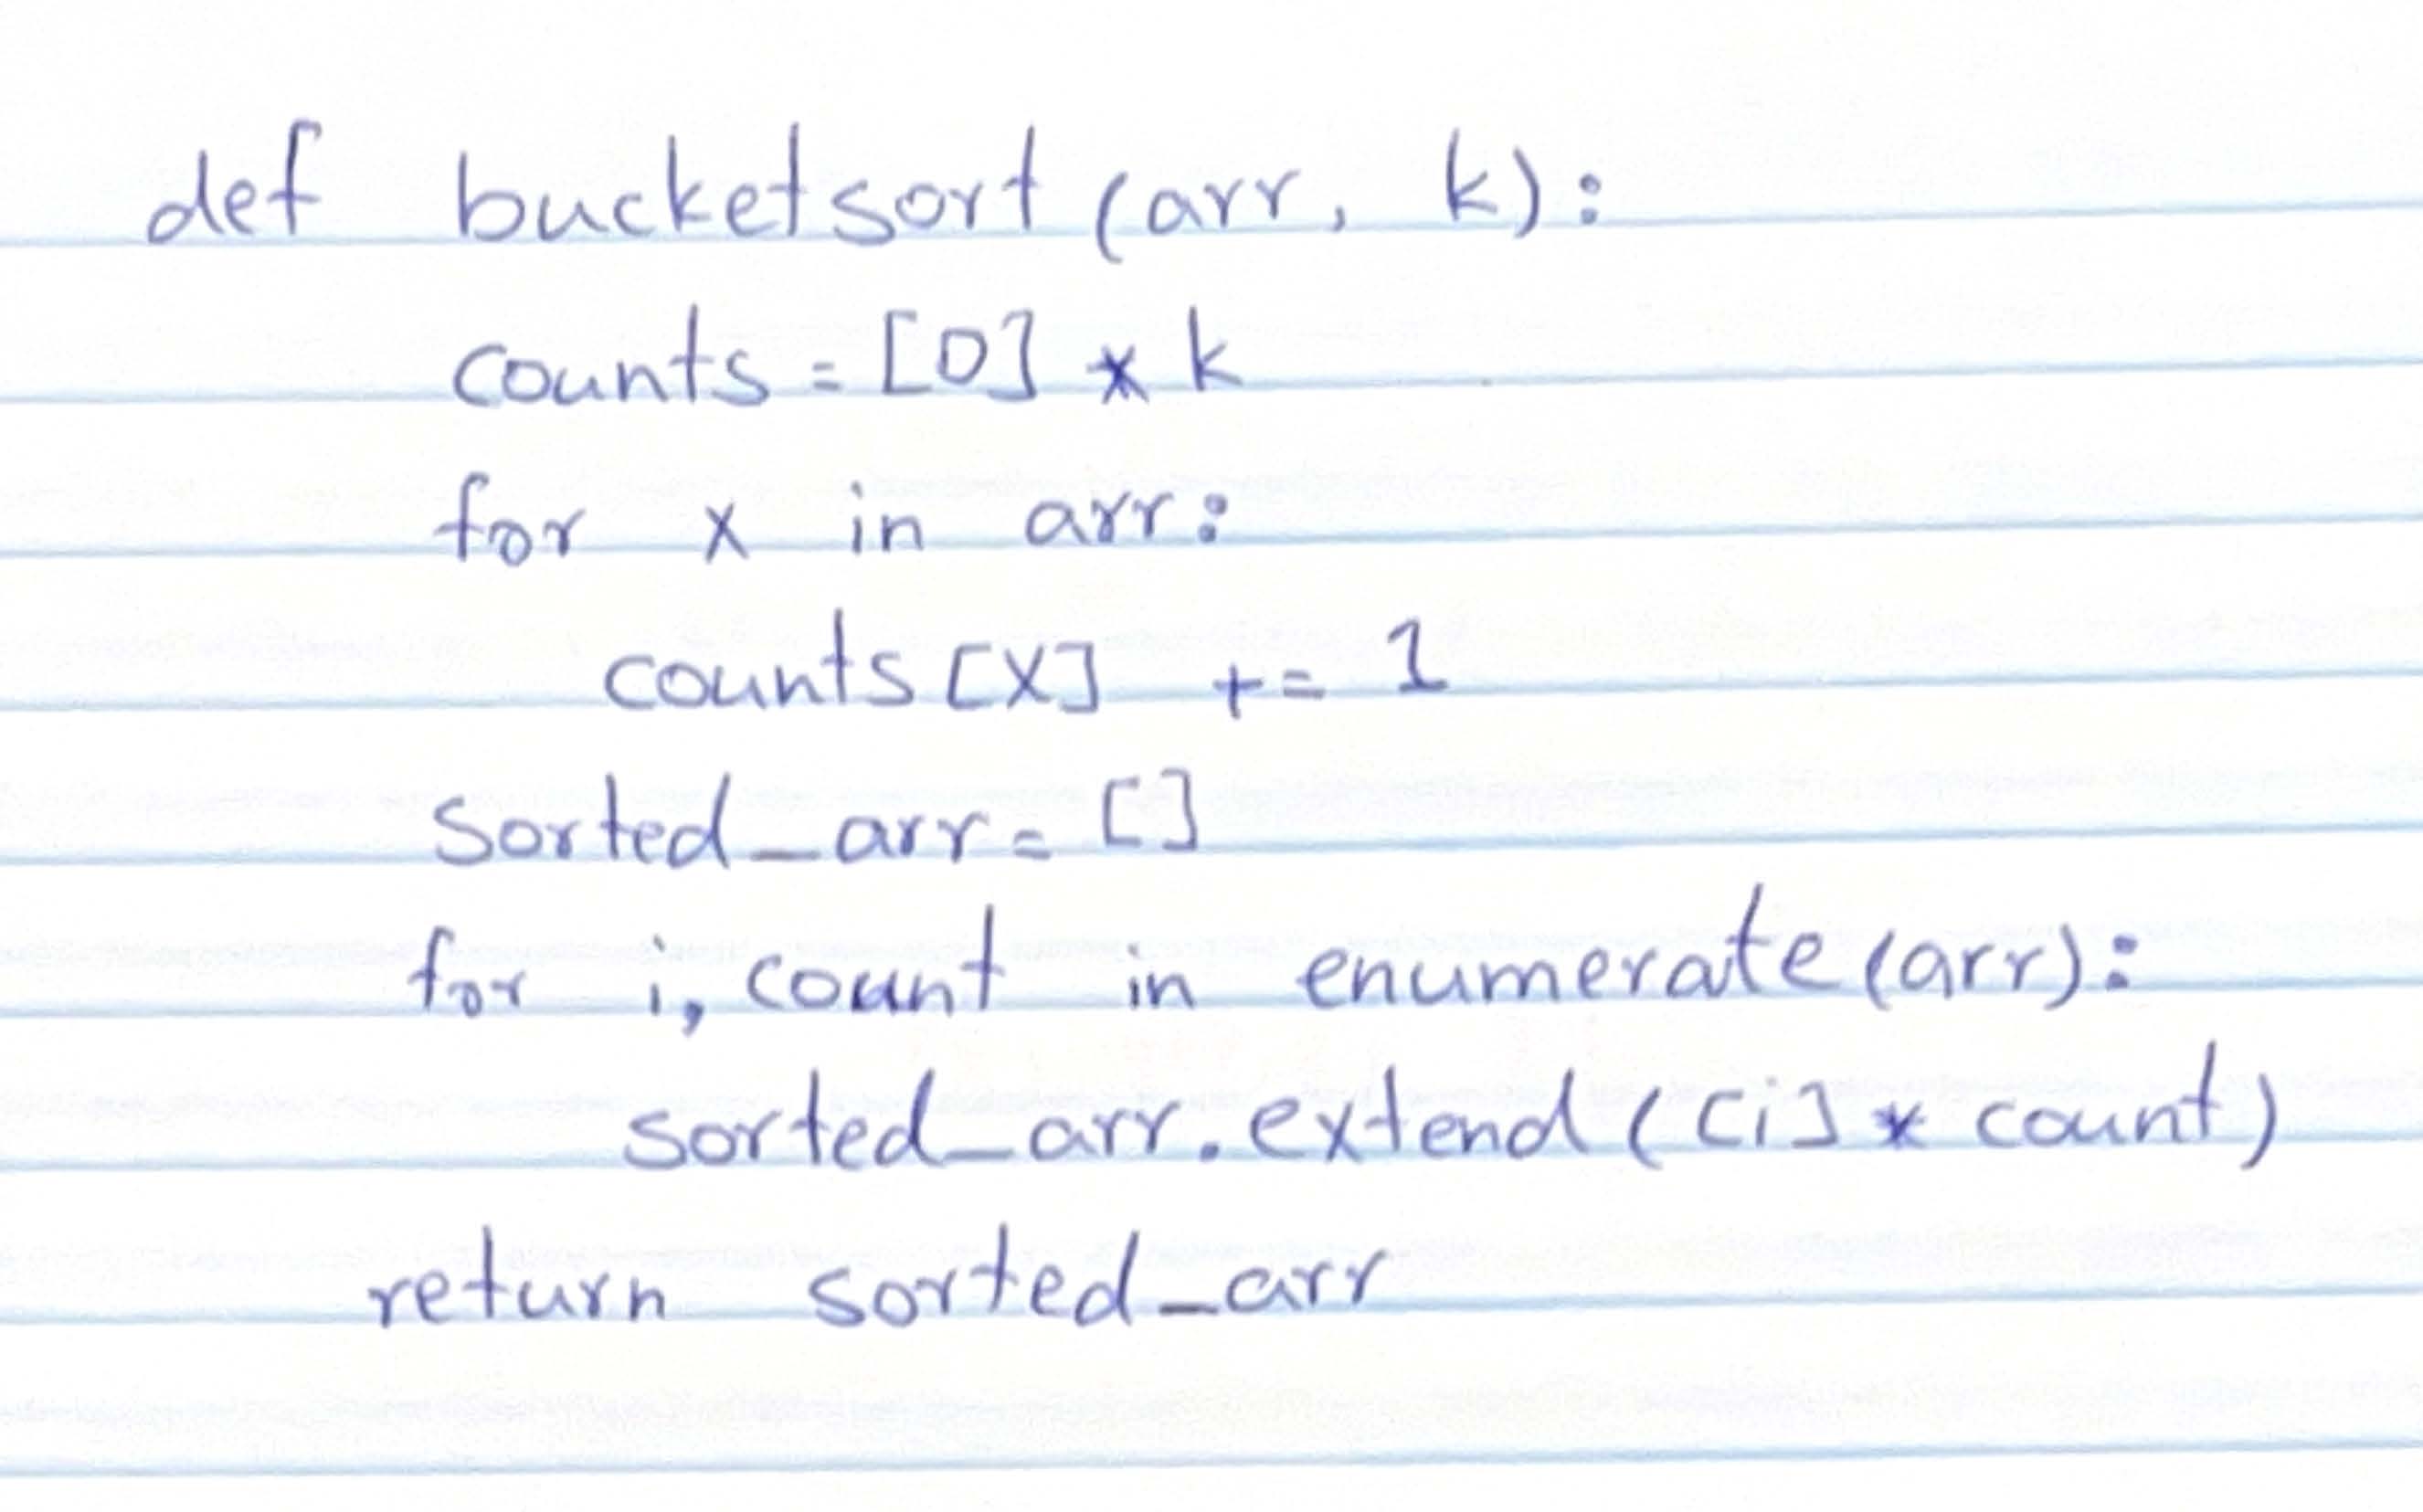 def bucketsort (arr, k):
counts = [0] * k
for x in arr:
counts [x] += 1
sorted_arr = []
for i, count in enumerate (arr):
sorted_arr.extend ([i] * count)
return sorted_arr